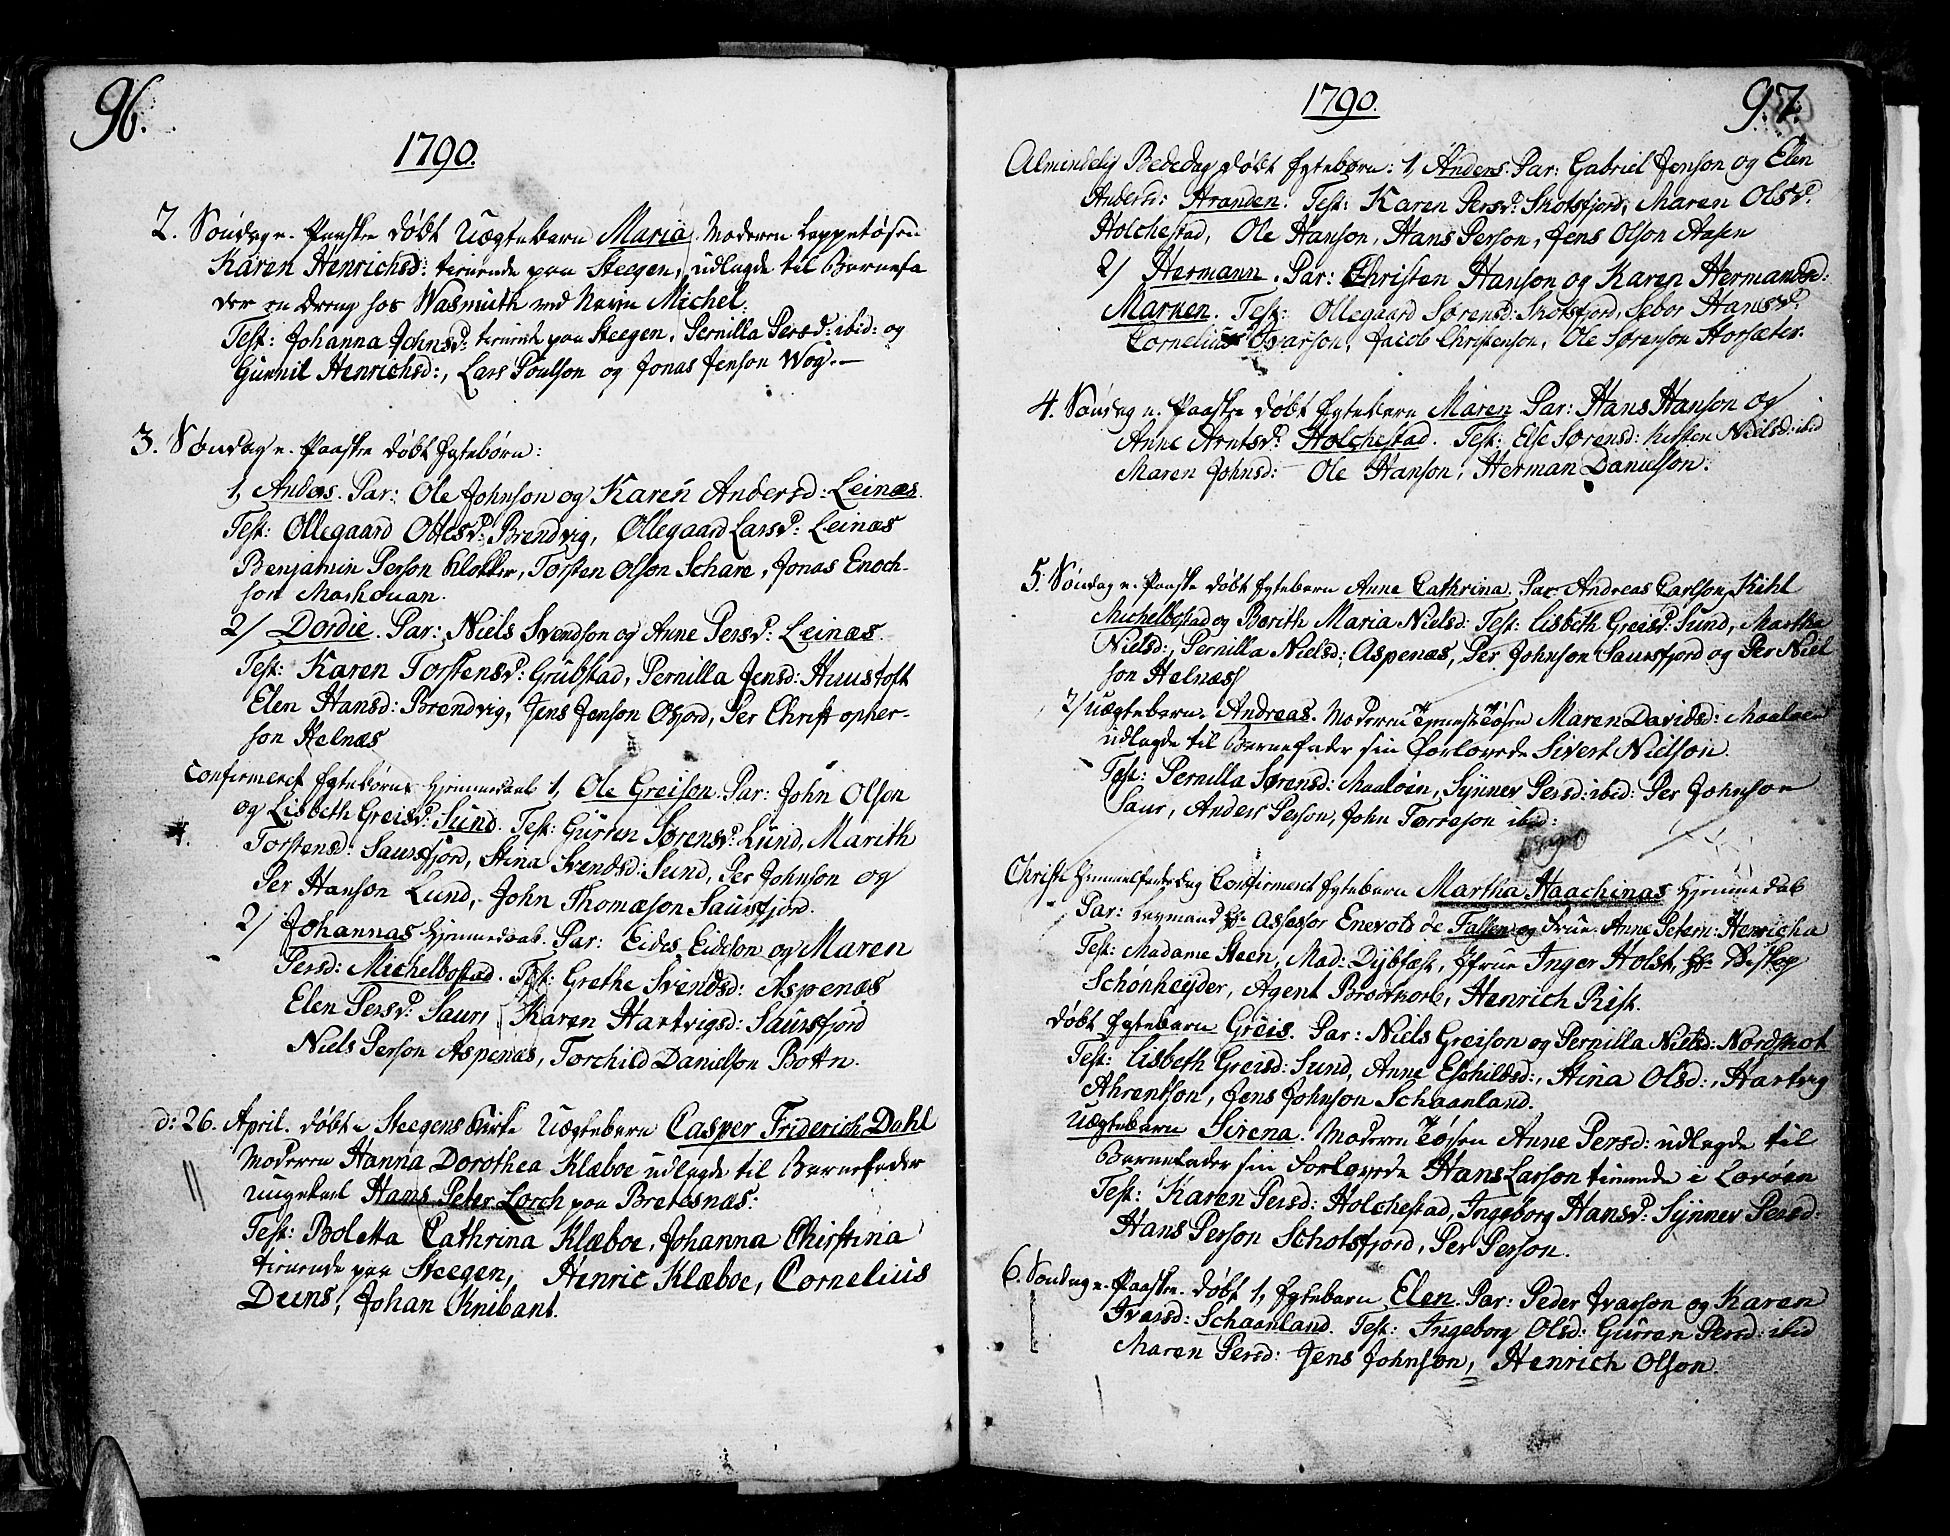 96.
1790.
2. Søndag e. Paaske døbt Uægtebarn Maria. Moderen Lappetøsen
Karen Henrichsd: tienende paa Steegen, udlagde til Barnefa
der en dreng hos Wasmuth ved Navn Michel.
Test: Johanna Johnsd: tienende paa Steegen, Pernilla Persd: ibid: og
Gunnil Henrichsd:, Lars Poulson og Jonas Jenson Wog.—
3. Søndag e. Paaske døbt Egtebørn:
1, Anders. Par: Ole Johnson og Karen Andersd: Leinæs.
Test: Ollegaard Ottesd: Brendvig, Ollegaard Larsd: Leinæs
Benjamin Person Klokker, Torsten Olson Schare, Jonas Enoch-
son
2/ Dordie. Par: Niels Svendson og Anne Persd: Leinæs.
Test: Karen Torstensd: Grübstad, Pernilla Jensd: Huustoft
Elen Hansd: Brendvig, Jens Jenson Osjord, Per Christopher-
son Helnæs
Confirmeret Egtebørns Hjemmedaab 1, Ole Greison. Par: John Olson
og Lisbeth Greisd: Sund. Test: Gürren Sørensd: Lund, Marith
Torstensd: Saursfjord, Stina Svendsd: Sund, Per Johnson og
Per Hanson Lund, John Thomæson Saursfjord.
2/ Johannas Hjemmedaab. Par: Eides Eidson og Maren
Persd: Michelbostad. Test: Grethe Svendsd: Aspenæs
Elen Persd: Saur, Karen Hartvigsd: Saursfjord
Niels Person Aspenæs, Torchild Danielson Bottn.
d: 26. April. døbt i Steegens Kirke Uægtebarn Casper Friderich Dahl
Moderen Hanna Dorothea Klæboe udlagde til Barnefader
ungekarl Hans Peter Lorch paa Bretesnæs:
Test: Boletta Cathrina Klæboe, Johanna Christina
tienende paa Steegen, Henric Klæboe, Cornelius
Deens, Johan Knibant.
1790.
97.
Almindelig Bededag døbt Egtebørn: 1, Anders. Par: Gabriel Jenson og Elen
Andersd: Stranden. Test: Karen Persd: Skotsfjord, Maren Olsd:
Holchestad, Ole Hanson, Hans Person, Jens Olson Aasen
2/ Hermann. Par: Christen Hanson og Karen Hermansd:
Marken. Test: Ollegaard Sørensd: Skotsfjord, Sebor Hansd:
Cornelius Ivarson, Jacob Christenson, Ole Sørenson Horsæter.
4. Søndag e. Paaske døbt Egtebarn Maren Par: Hans Hanson og
Anne Arntsd: Holchestad. Test: Else Sørensd: Kirsten Nielsd: ibid
Maren Johnsd: Ole Hanson, Herman Danielson.
5. Søndag e. Paaske døbt Egtebarn Anne Cathrina. Par Andreas Carlson Kihl
Michelbostad og Berith Maria Nielsd: Test: Lisbeth Greisd: Sund, Martha
Nielsd:, Pernilla Nielsd: Aspenæs, Per Johnson Saursfjord og Per Niel
son Helnæss
2/ Uægtebarn. Andreas. Moderen Tienestetøsen Maren Davidsd: Maaløen
udlagde til Barnefader sin Forlovede Sivert Nielson.
Test: Pernilla Sørensd: Maaløen, Synnev Persd: ibid: Per Johnson
Saur, Anders Person, John Torreson ibid:
Christi Himmelfartsdag Confirmeret Egtebarn Martha Haachinas Hjemmedaab
Par: Laugmand Hr. Assessor Enevold de Falsen og Frue Anne Petern: Henricha
Test: Madame Steen, Mad: Dybfæst, Jfrue Inger Holst, Hr. Biskop
Schønheyder, Agent Brodtkorb, Henrich Rist.
Døbt Egtebarn Greis. Par: Niels Greison og Pernilla Nielsd: Nordskot
Test: Lisbeth Greisd: Sund, Anne Eschildsd:, Stina Olsd:, Hartvig
Ahrentson, Jens Johnson Schaanland.
Uægtebarn Sirena. Moderen Tøsen Anne Persd: udlagde til
Barnefader sin Forlovede Hans Larson tienende i Lovøen
Test: Karen Persd: Holchestad, Ingeborg Hansd: Synnev Persd:
Hans Person Schotsfjord, Per Person.
6. Søndag e. Paaske. døbt 1, Egtebarn Elen. Par: Peder Ivarson og Karen
Ivarsd: Schaanland. Test: Ingeborg Olsd: Gürren Persd: ibid
Maren Persd: Jens Johnson, Henrich Olson.